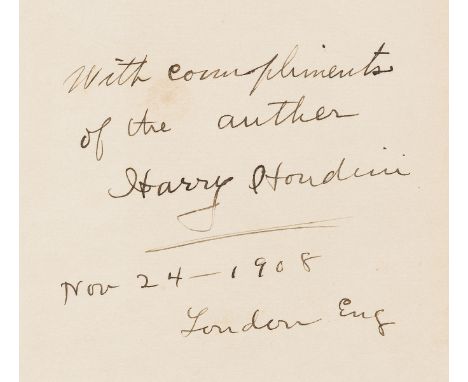 With compliments
of the auther
Harry Houdini
Nov 24 - 1908
London Eng